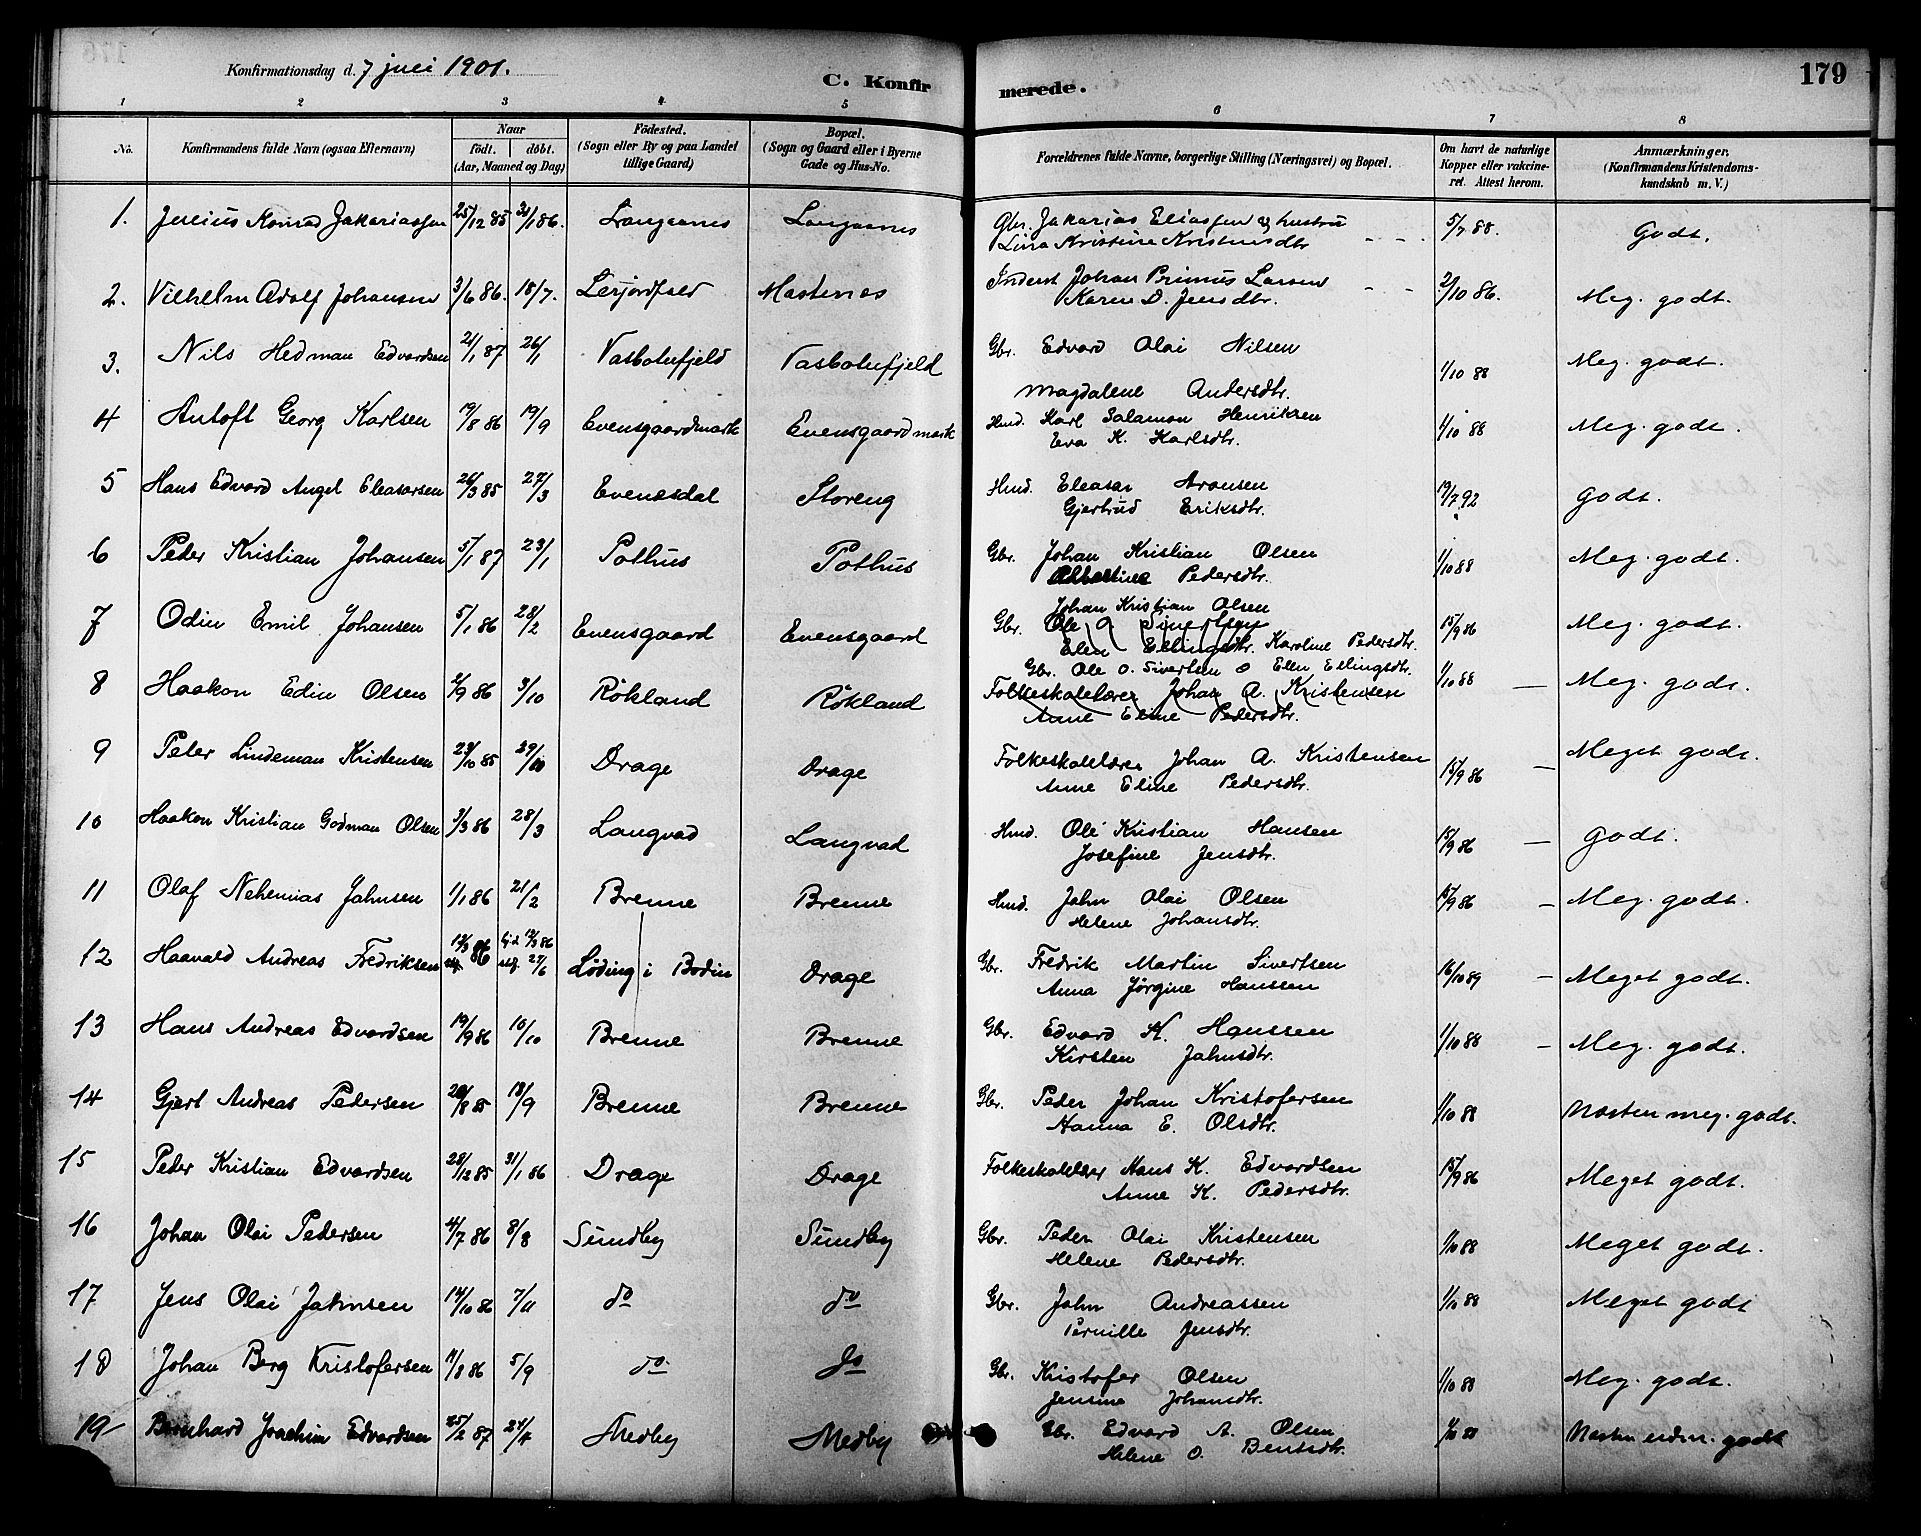 Konfirmationsdag d. 7 juli 1901.
C. Konfirmerede.
179
1 2 3 4 5 6 7 8
No.
Konfirmandens fulde Navn (ogsaa Efternavn)
Naar
födt. döbt.
(Aar, Maaned og Dag)
Födested.
(Sogn eller By og paa Landet
tillige Gaard)
Bopæl.
(Sogn og Gaard eller i Byerne
Gade og Hus-No.
Forældrenes fulde Navne, borgerlige Stilling (Næringsvei) og Bopæl.
Om havt de naturlige
Kopper eller vakcine-
ret. Attest herom.
Anmærkninger.
(Konfirmandens Kristendoms-
kundskab m. V.)
1. Julius Konrad Jakariassen 25/12 85 31/1 86. Langaanes Langaanes Gbr. Jakarias Eliassen og hustru 5/7 88. Godt.
Lina Kristine Kristensdtr
2. Vilhelm Adolf Johansen 3/6 86. 18/7. Lerjordfald Mastenes Inderst Johan Primus Larsen 2/10 86. Meg. godt.
Karen D. Jensdtr.
3. Nils Hedman Edvardsen 21/1 87 26/1 Vasbotnfjeld Vasbotnfjeld Gbr. Edvard Olai Nilsen 1/10 88 Meg. godt.
Magdalene Andersdtr.
4 Antoft Georg Karlsen 19/8 86 19/9 Evensgaardmark Evensgaardmark Hmd. Karl Salamon Henriksen 1/10 88 Meg. godt.
Eva K. Karlsdtr.
5 Hans Edvard Angel Eleasarsen 26/3 85 27/3 Evenesdal Storeng Hmd. Eleasar Aronsen 19/7 92 Godt.
Gjertrud Eriksdtr.
6 Peder Kristian Johansen 5/1 87 23/1 Pothus Pothus Gbr. Johan Kristian Olsen 1/10 88 Meg. godt.
Albertine Pedersdtr.
7 Odin Emil Johansen 5/1 86 28/2 Evensgaard Evensgaard Johan Kristian Olsen
Gbr. Ole O. Sivertsen 15/9 86 Meg. godt.
Elen Ellingsdtr. Karoline Pedersdtr.
8 Haakon Edin Olsen 2/9 86 3/10 Røkland Røkland Gbr. Ole O. Sivertsen o Ellen Ellingsdtr. 1/10 88 — Meg. godt.
Folkeskolelærer Johan A. Kristensen
Anne Eline Pedersdtr.
9 Peter Lindeman Kristensen 23/10 85 29/10 Drage Drage Folkeskolelærer Johan A. Kristensen 15/9 86 — Meget godt.
Anne Eline Pedersdtr.
10 Haakon Kristian Godman Olsen 3/3 86 28/3 Langvad Langvad Hmd. Ole Kristian Hansen 15/9 86 — Godt.
Josefine Jensdtr.
11 Olaf Nehemias Jahnsen 1/1 86 21/2 Brenne Brenne Hmd. Jahn Olai Olsen 15/9 86 — Meg. godt.
Helene Johansdtr.
12 Haavald Andreas Fredriksen 12/3 86 hjd 12/3 86 stf. 27/6 Løding i Bodin Drage Gbr. Fredrik Martin Sivertsen 16/10 89 — Meget godt.
Anna Jørgine Hanssen
13 Hans Andreas Edvardsen 19/9 86 10/10 Brenne Brenne Gbr. Edvard K. Hanssen 1/10 88 — Meg. godt.
Kirsten Jahnsdtr.
14 Gjert Andreas Pedersen 20/8 85 13/9 Brenne Brenne Gbr. Peder Johan Kristofersen 1/10 88 Næsten meg. godt.
Hanna E. Olsdtr.
15 Peder Kristian Edvardsen 28/12 85 31/1 86 Drage Drage Folkeskolelærer Hans K. Edvardsen 15/9 86 Meget godt.
Anne K. Pedersdtr.
16 Johan Olai Pedersen 4/7 86 8/8 Sundby Sundby Gbr. Peder Olai Kristensen 1/10 88 Meget godt.
Helene Pedersdtr.
17 Jens Olai Jahnsen 14/10 86 7/11 do do Gbr. John Andreassen 1/10 88 Meget godt
Pernille Jensdtr.
18 Johan Berg Kristofersen 11/8 86 5/9 do do Gbr. Kristofer Olsen 1/10 88 Meg. godt.
Jensine Johansdtr.
19 Bernhard Joachim Edvardsen 25/2 87 24/4 Medby Medby Gbr. Edvard A. Olsen 1/10 88 Næsten udm. godt
Helene O. Bentsdtr.